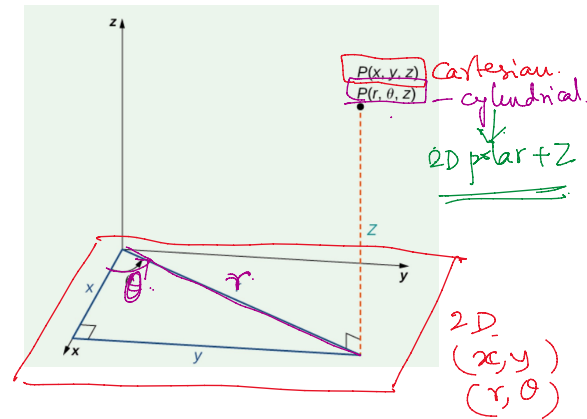 z
P(x, y, z) Cartesian.
P(r, θ, z) - cylindrical.
2D polar + Z
z
y
x
θ
r
x
y
2D
(x, y)
(r, θ)